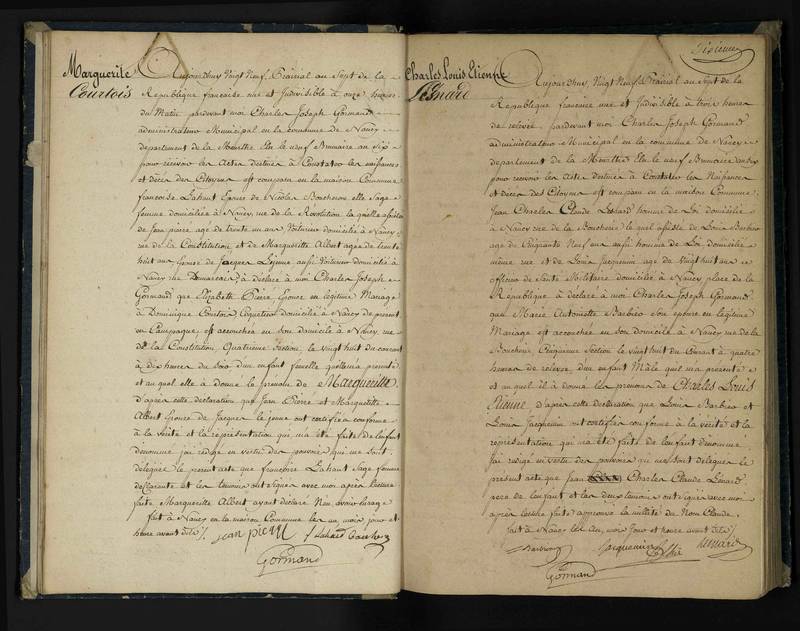 Marguerite
Courtois
Aujourdhuy Vingt Neuf Prairial au Sept de la
Republique francaise une et Indivisible à onze heures
du Matin pardevant moi Charles Joseph Gormand
administrateur Municipal en la commune de Nancy
departement de la Meurthe Elu le neuf Brumaire an Six
pour recevoir les Actes destinés à Constater les naissances
et décès des Citoyens est comparu en la maison Commune
francoise Lahaut Epouse de Nicolas Boucheron elle Sage
femme domiciliée à Nancy rue de la Révolution laquelle assistée
de Jean pierre age de trente un ans Voiturier domicilié à Nancy
rue de la Constitution et de Marguerite Albert agée de trente
huit ans femme de Jacques Lejeune aussi Voiturier domicilié à
Nancy rue à déclaré à moi Charles Joseph
Gormand que Elizabeth Pierré Epouse en légitime Mariage
à Dominique Courtois Coquetier domicilié à Nancy de present
en Campagne est accouchée en son domicile à Nancy rue
de la Constitution Quatrieme Section le vingt huit du courant
à dix heures du Soir d'un enfant femelle quelle m'a presenté
et auquel elle a donné le prénom de Marguerite
d'apres cette déclaration que Jean Pierré et Marguerite
Albert Epouse de Jacques le jeune ont certifiée conforme
à la vérité et la représentation qui m'a été faite de l'enfant
dénommé j'ai redigé en vertu des pouvoirs qui me sont
délégués le present acte que francoise Lahaut Sage femme
déclarante et les temoins ont signés avec moi après lecture
faite Marguerite Albert ayant déclaré Nen avoir l'usage
fait à Nancy en la maison Commune les an, mois jour et
heure avant dits
jean pierre f Lahaut
Gormand
Dixieme
Charles Louis Etienne
Lesnard
Aujourdhuy Vingt Neuf Prairial au Sept de la
République francaise une et Indivisible à trois heures
de relevée pardevant moi Charles Joseph Gormand
administrateur Municipal en la commune de Nancy
departement de la Meurthe Elu le neuf Brumaire an Six
pour recevoir les Actes destinés à Constater les Naissances
et décès des Citoyens est comparu en la maison Commune
Jean Charles Claude Lesnard homme de Loi domicilié
à Nancy rue de la Boucherie lequel assisté de Louis Barbier
age de Cinquante Neuf ans aussi homme de Loi domicilié
même rue et de Louis Jacqueminn age de vingt huit ans
officier de Santé Militaire domicilié à Nancy place de la
République à déclaré à moi Charles Joseph Gormand
que Marie Antoinette Barbier Son épouse en légitime
Mariage est accouchée en Son domicile à Nancy rue de la
Boucherie Cinquieme Section le vingt huit du Courant à quatre
heures de relevée d'un enfant Mâle qu'il m'a presenté
et auquel il a donné les prenoms de Charles Louis
Etienne d'apres cette déclaration que Louis Barbier et
Louis Jacqueminn ont certifiée conforme à la vérité et la
représentation qui m'a été faite de l'enfant dénommé
j'ai redigé en vertu des pouvoirs qui me sont délégués le
present acte que Jean Charles Claude Lesnard
pere de l'enfant et les deux temoins ont signés avec moi
après lecture faite approuvé la nullité du Nom Claude.
fait à Nancy les an, mois Jour et heure avant dits
Barbier Jacqueminn Lesnard
Gormand